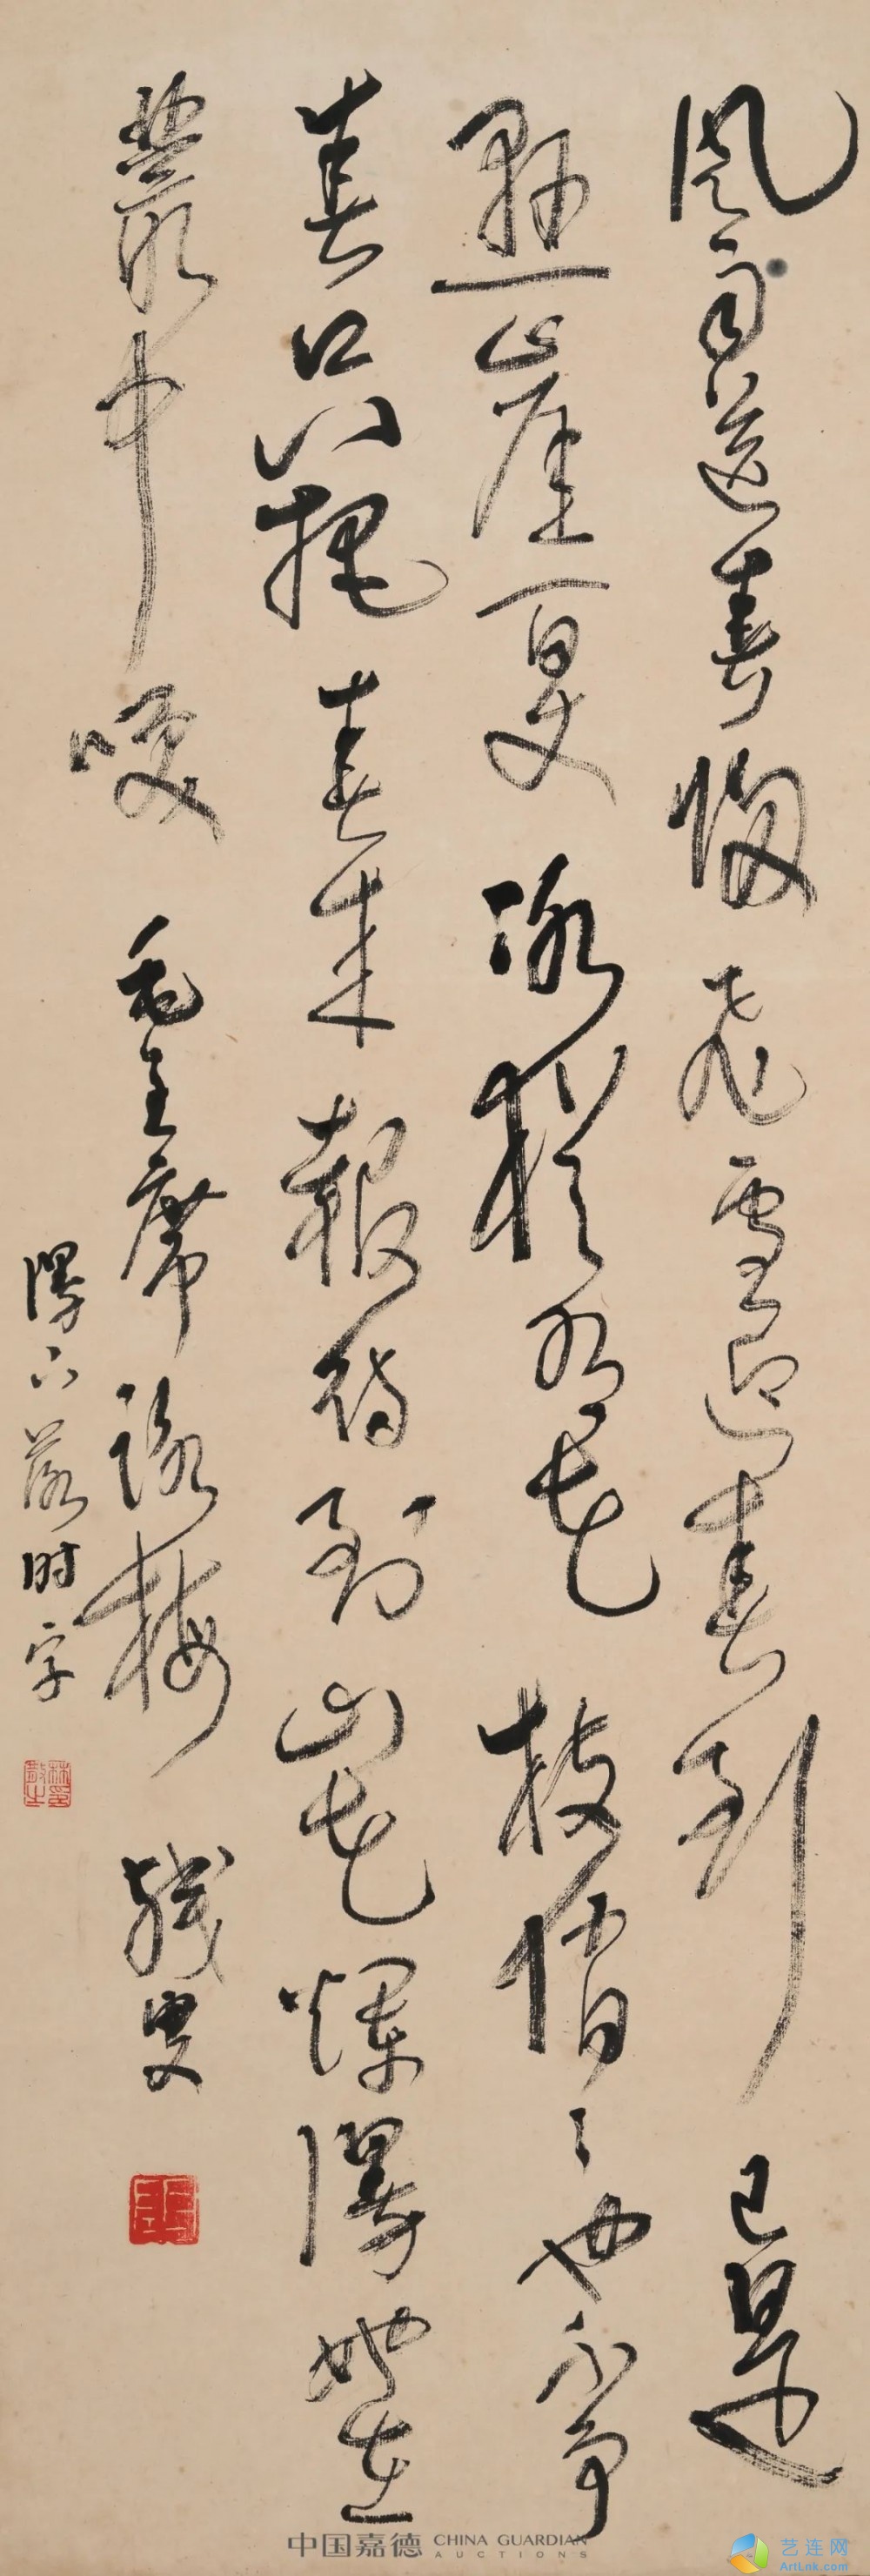 風雨送春歸飛雪迎春到已是
懸崖百丈冰猶有花枝俏〻也不争
春只把春来報待到山花爛漫她在
叢中咲 毛主席詠梅 散叟
漫下落时字
林散之印
中国嘉德 CHINA GUARDIAN
AUCTIONS
艺连网
ArtLnk.com